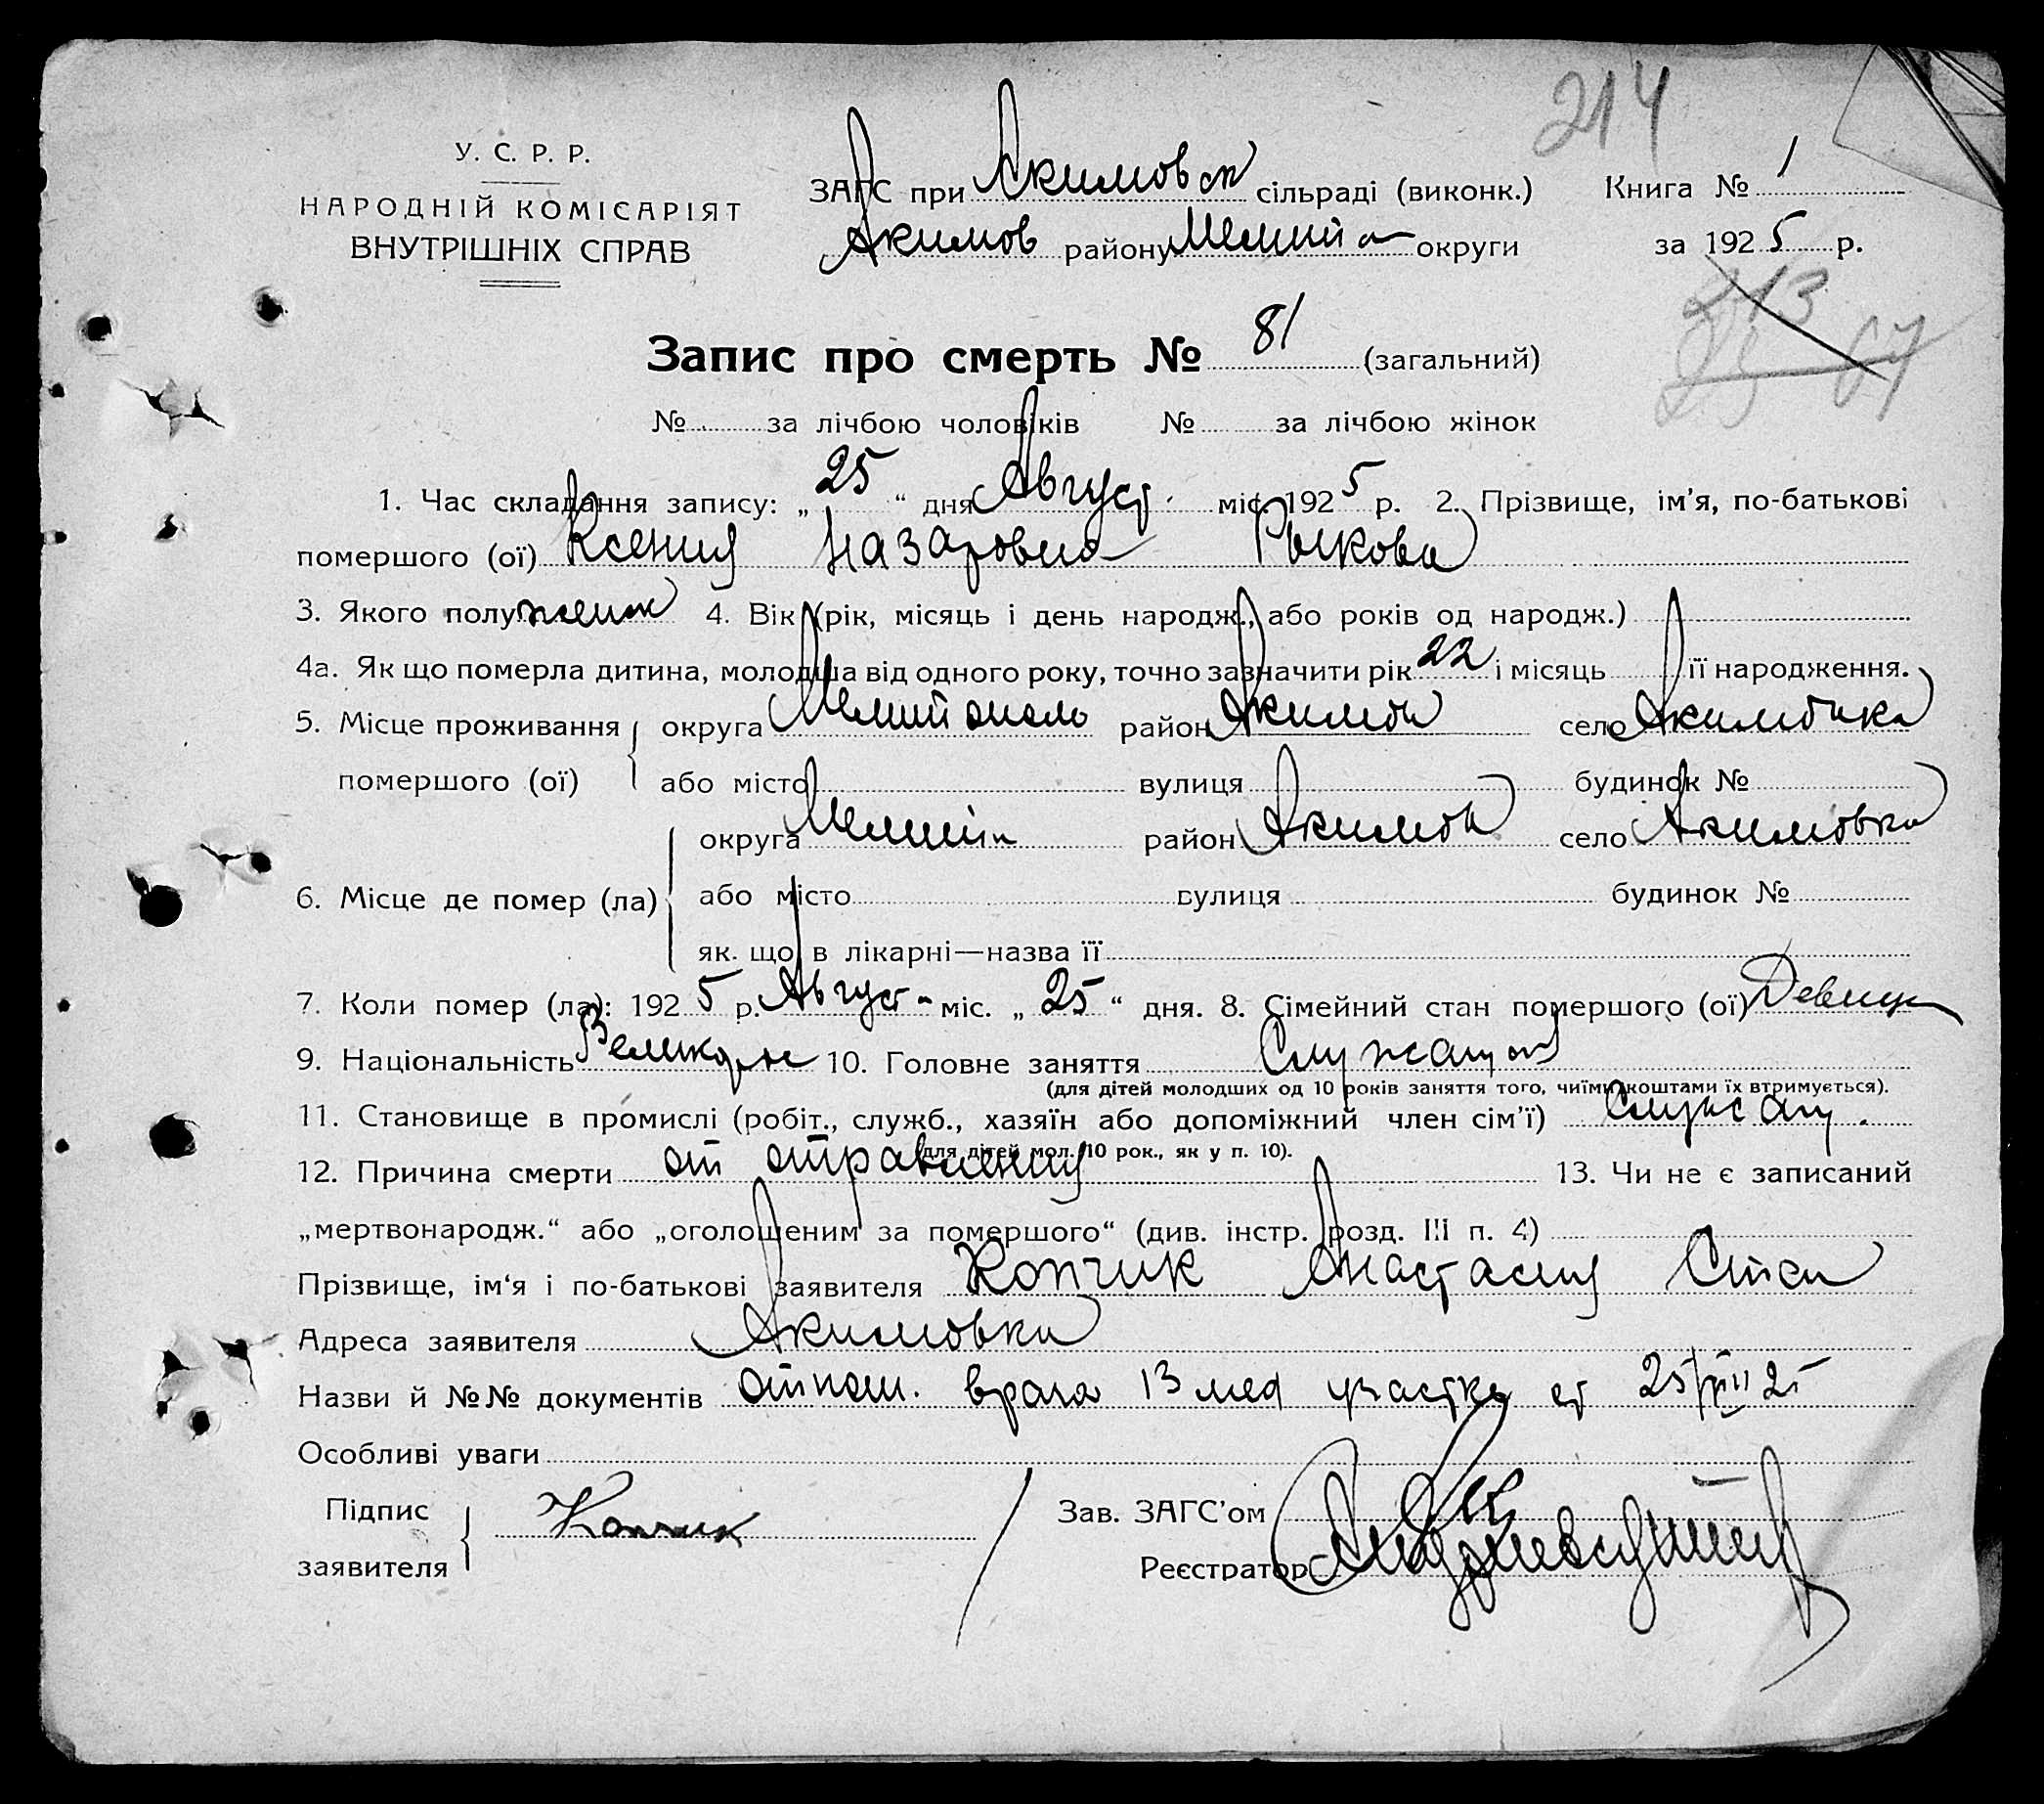 214
У. С. Р. Р.
НАРОДНІЙ КОМІСАРІЯТ
ВНУТРІШНІХ СПРАВ
ЗАГС при Акимовск сільраді (виконк.)
Акимов району Мелит округи
Книга № 1
за 1925 р.
213
67
Запис про смерть № 81 (загальний)
№ за лічбою чоловіків № за лічбою жінок
1. Час складання запису: „ 25 “ дня Август міс. 1925 р. 2. Прізвище, ім’я, по-батькові
помершого (ої) Ксения Назаровна Рыкова
3. Якого полу женск 4. Вік (рік, місяць і день народж., або років од народж.)
4а. Як що померла дитина, молодша від одного року, точно зазначити рік 22 і місяць її народження.
5. Місце проживання округа Мелитополь район Акимов село Акимовка
помершого (ої) або місто вулиця будинок №
округа Мелит район Акимов село Акимовка
6. Місце де помер (ла) або місто вулиця будинок №
як. що в лікарні—назва її
7. Коли помер (ла): 1925 р. Август міс. „ 25 “ дня. 8. Сімейний стан помершого (ої) Девица
9. Національність Великор 10. Головне заняття Служащая
(для дітей молодших од 10 років заняття того, чиїми коштами їх втримується).
11. Становище в промислі (робіт., служб., хазяїн або допоміжний член сім’ї) Служащ.
(для дітей мол. 10 рок., як у п. 10).
12. Причина смерти от отравления 13. Чи не є записаний
„мертвонародж.“ або „оголошеним за помершого“ (див. інстр. розд. III п. 4)
Прізвище, ім‘я і по-батькові заявителя Копчик Анастасия
Адреса заявителя Акимовка
Назви й №№ документів отнош. врача 13 мед участка от 25/VIII 25
Особливі уваги
Підпис
заявителя Копчик
Зав. ЗАГС’ом
Реєстратор